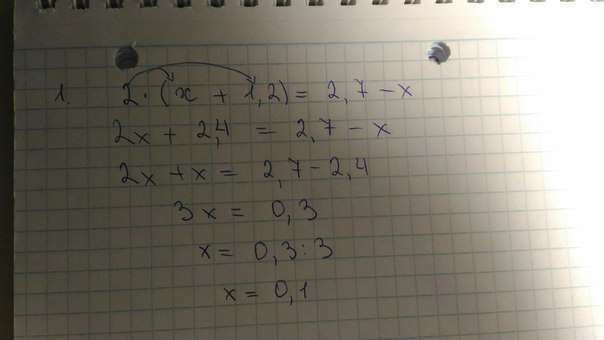 1. 2·(x + 1,2) = 2,7 - x
2x + 2,4 = 2,7 - x
2x + x = 2,7 - 2,4
3x = 0,3
x = 0,3 : 3
x = 0,1